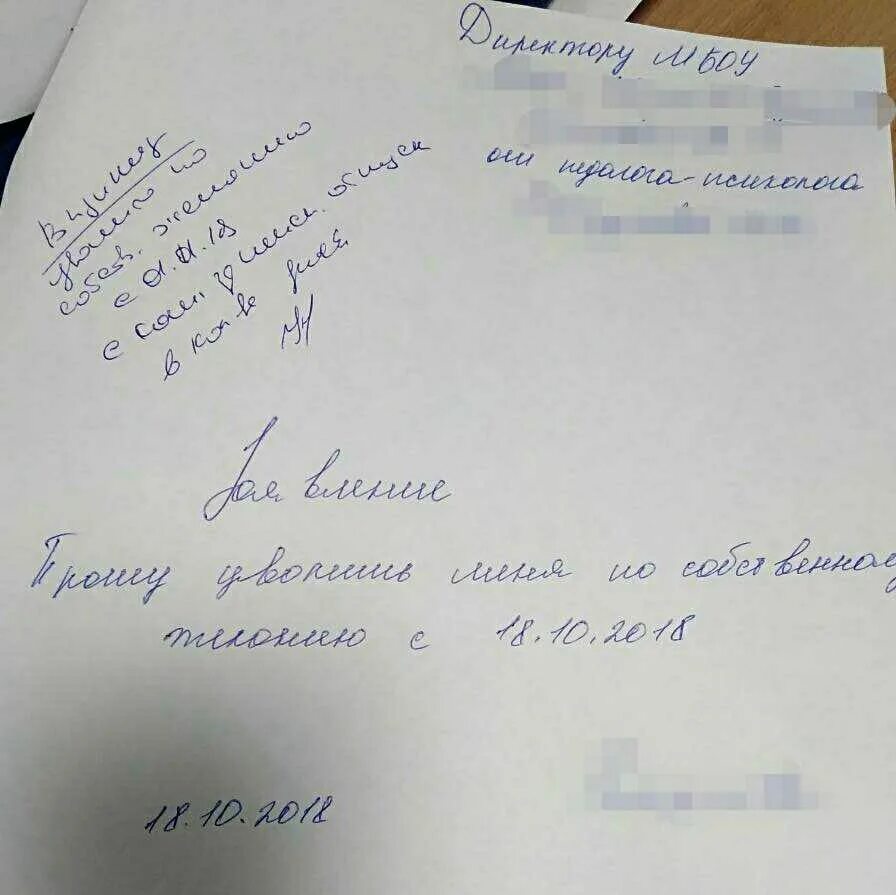 Директору МБОУ
от педагога-психолога
В приказ
уволить по
собств. желанию
с 01.11.18
с комп. отпуск
в кол-ве дней
Заявление
Прошу уволить меня по собственному
желанию с 18.10.2018
18.10.2018